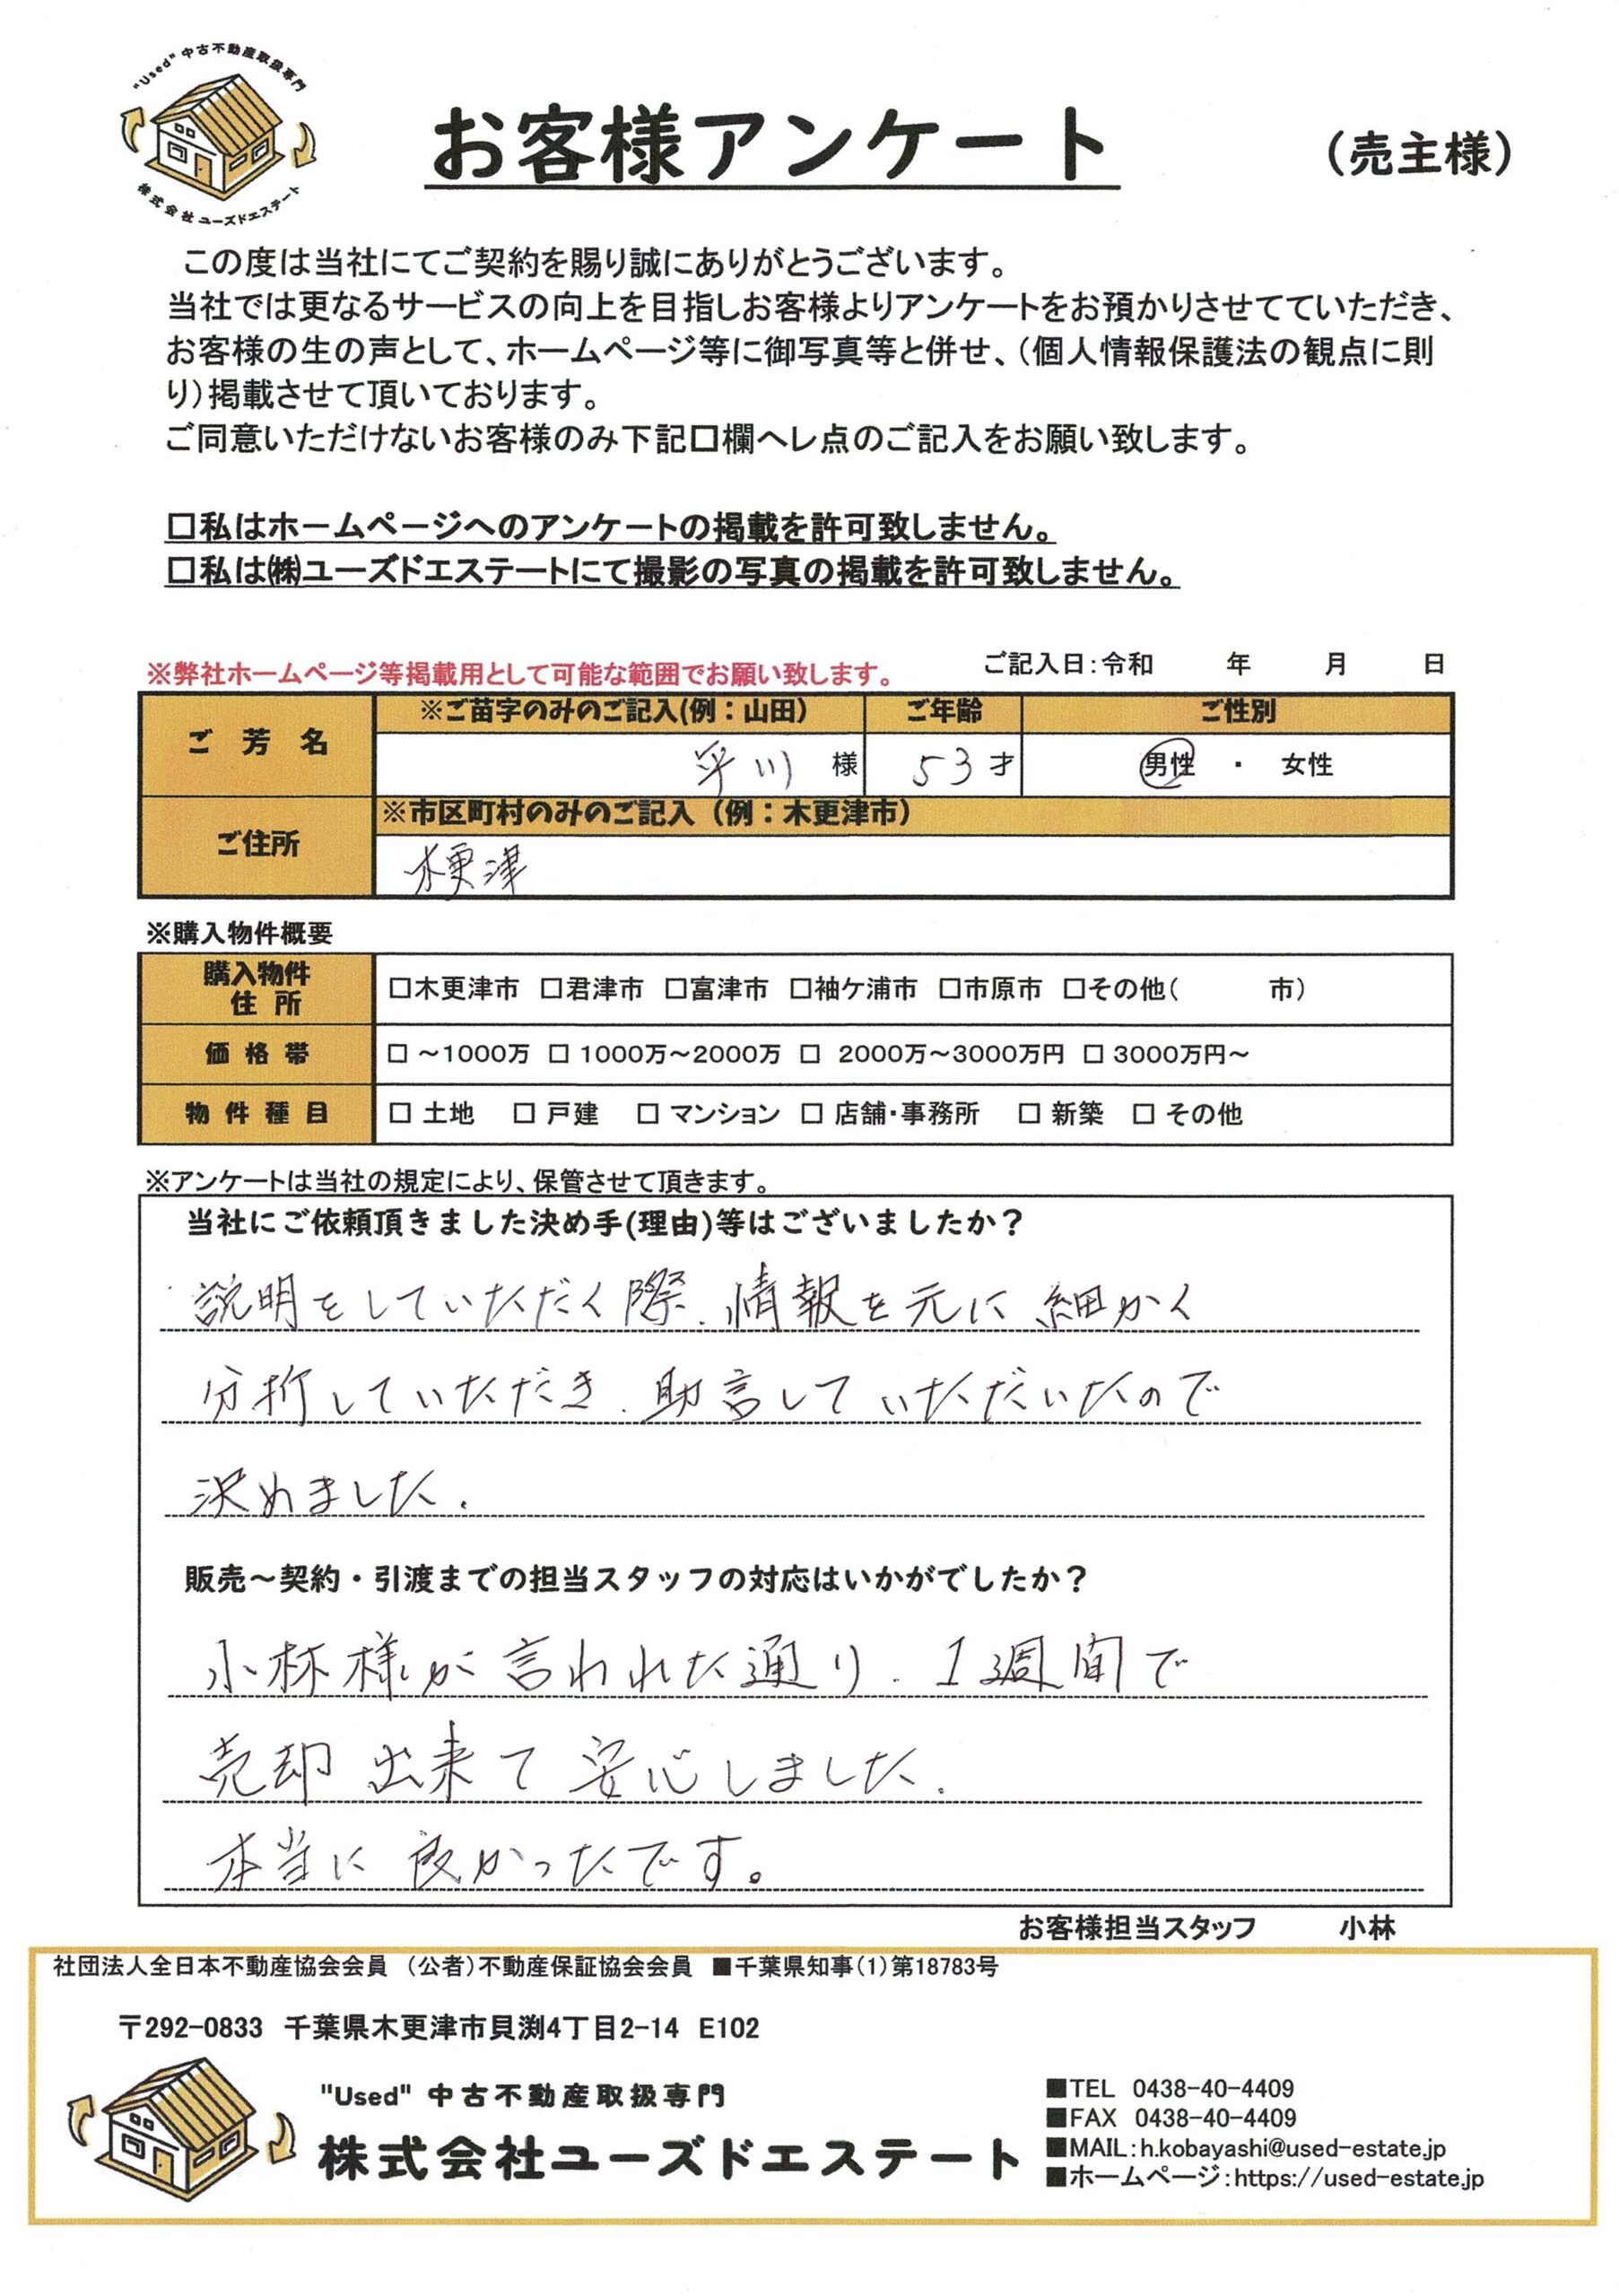 "Used" 中古不動産取扱専門
株式会社ユーズドエステート
お客様アンケート
（売主様）
この度は当社にてご契約を賜り誠にありがとうございます。
当社では更なるサービスの向上を目指しお客様よりアンケートをお預かりさせてていただき、
お客様の生の声として、ホームページ等に御写真等と併せ、（個人情報保護法の観点に則
り）掲載させて頂いております。
ご同意いただけないお客様のみ下記口欄へレ点のご記入をお願い致します。
□私はホームページへのアンケートの掲載を許可致しません。
□私は㈱ユーズドエステートにて撮影の写真の掲載を許可致しません。
※弊社ホームページ等掲載用として可能な範囲でお願い致します。
ご記入日：令和　　年　　月　　日
ご 芳 名
※ご苗字のみのご記入(例：山田）　ご年齢　ご性別
平川 様　53才　男性 ・ 女性
ご住所
※市区町村のみのご記入（例：木更津市）
木更津
※購入物件概要
購入物件
住 所
□木更津市 □君津市 □富津市 □袖ケ浦市 □市原市 □その他（　　市）
価 格 帯　□ ～1000万 □ 1000万～2000万 □ 2000万～3000万円 □ 3000万円～
物 件 種 目　□ 土地 □ 戸建 □ マンション □ 店舗・事務所 □ 新築 □ その他
※アンケートは当社の規定により、保管させて頂きます。
当社にご依頼頂きました決め手(理由)等はございましたか？
説明をしていただく際、情報を元に細かく
分析していただき、助言していただいたので
決めました。
販売～契約・引渡までの担当スタッフの対応はいかがでしたか？
小林様が言われた通り、1週間で
売却出来て安心しました。
本当に良かったです。
お客様担当スタッフ　小林
社団法人全日本不動産協会会員 （公者）不動産保証協会会員 ■千葉県知事（1）第18783号
〒292-0833 千葉県木更津市貝渕4丁目2-14 E102
"Used" 中古不動産取扱専門
株式会社ユーズドエステート
■TEL 0438-40-4409
■FAX 0438-40-4409
■MAIL：h.kobayashi@used-estate.jp
■ホームページ：https://used-estate.jp